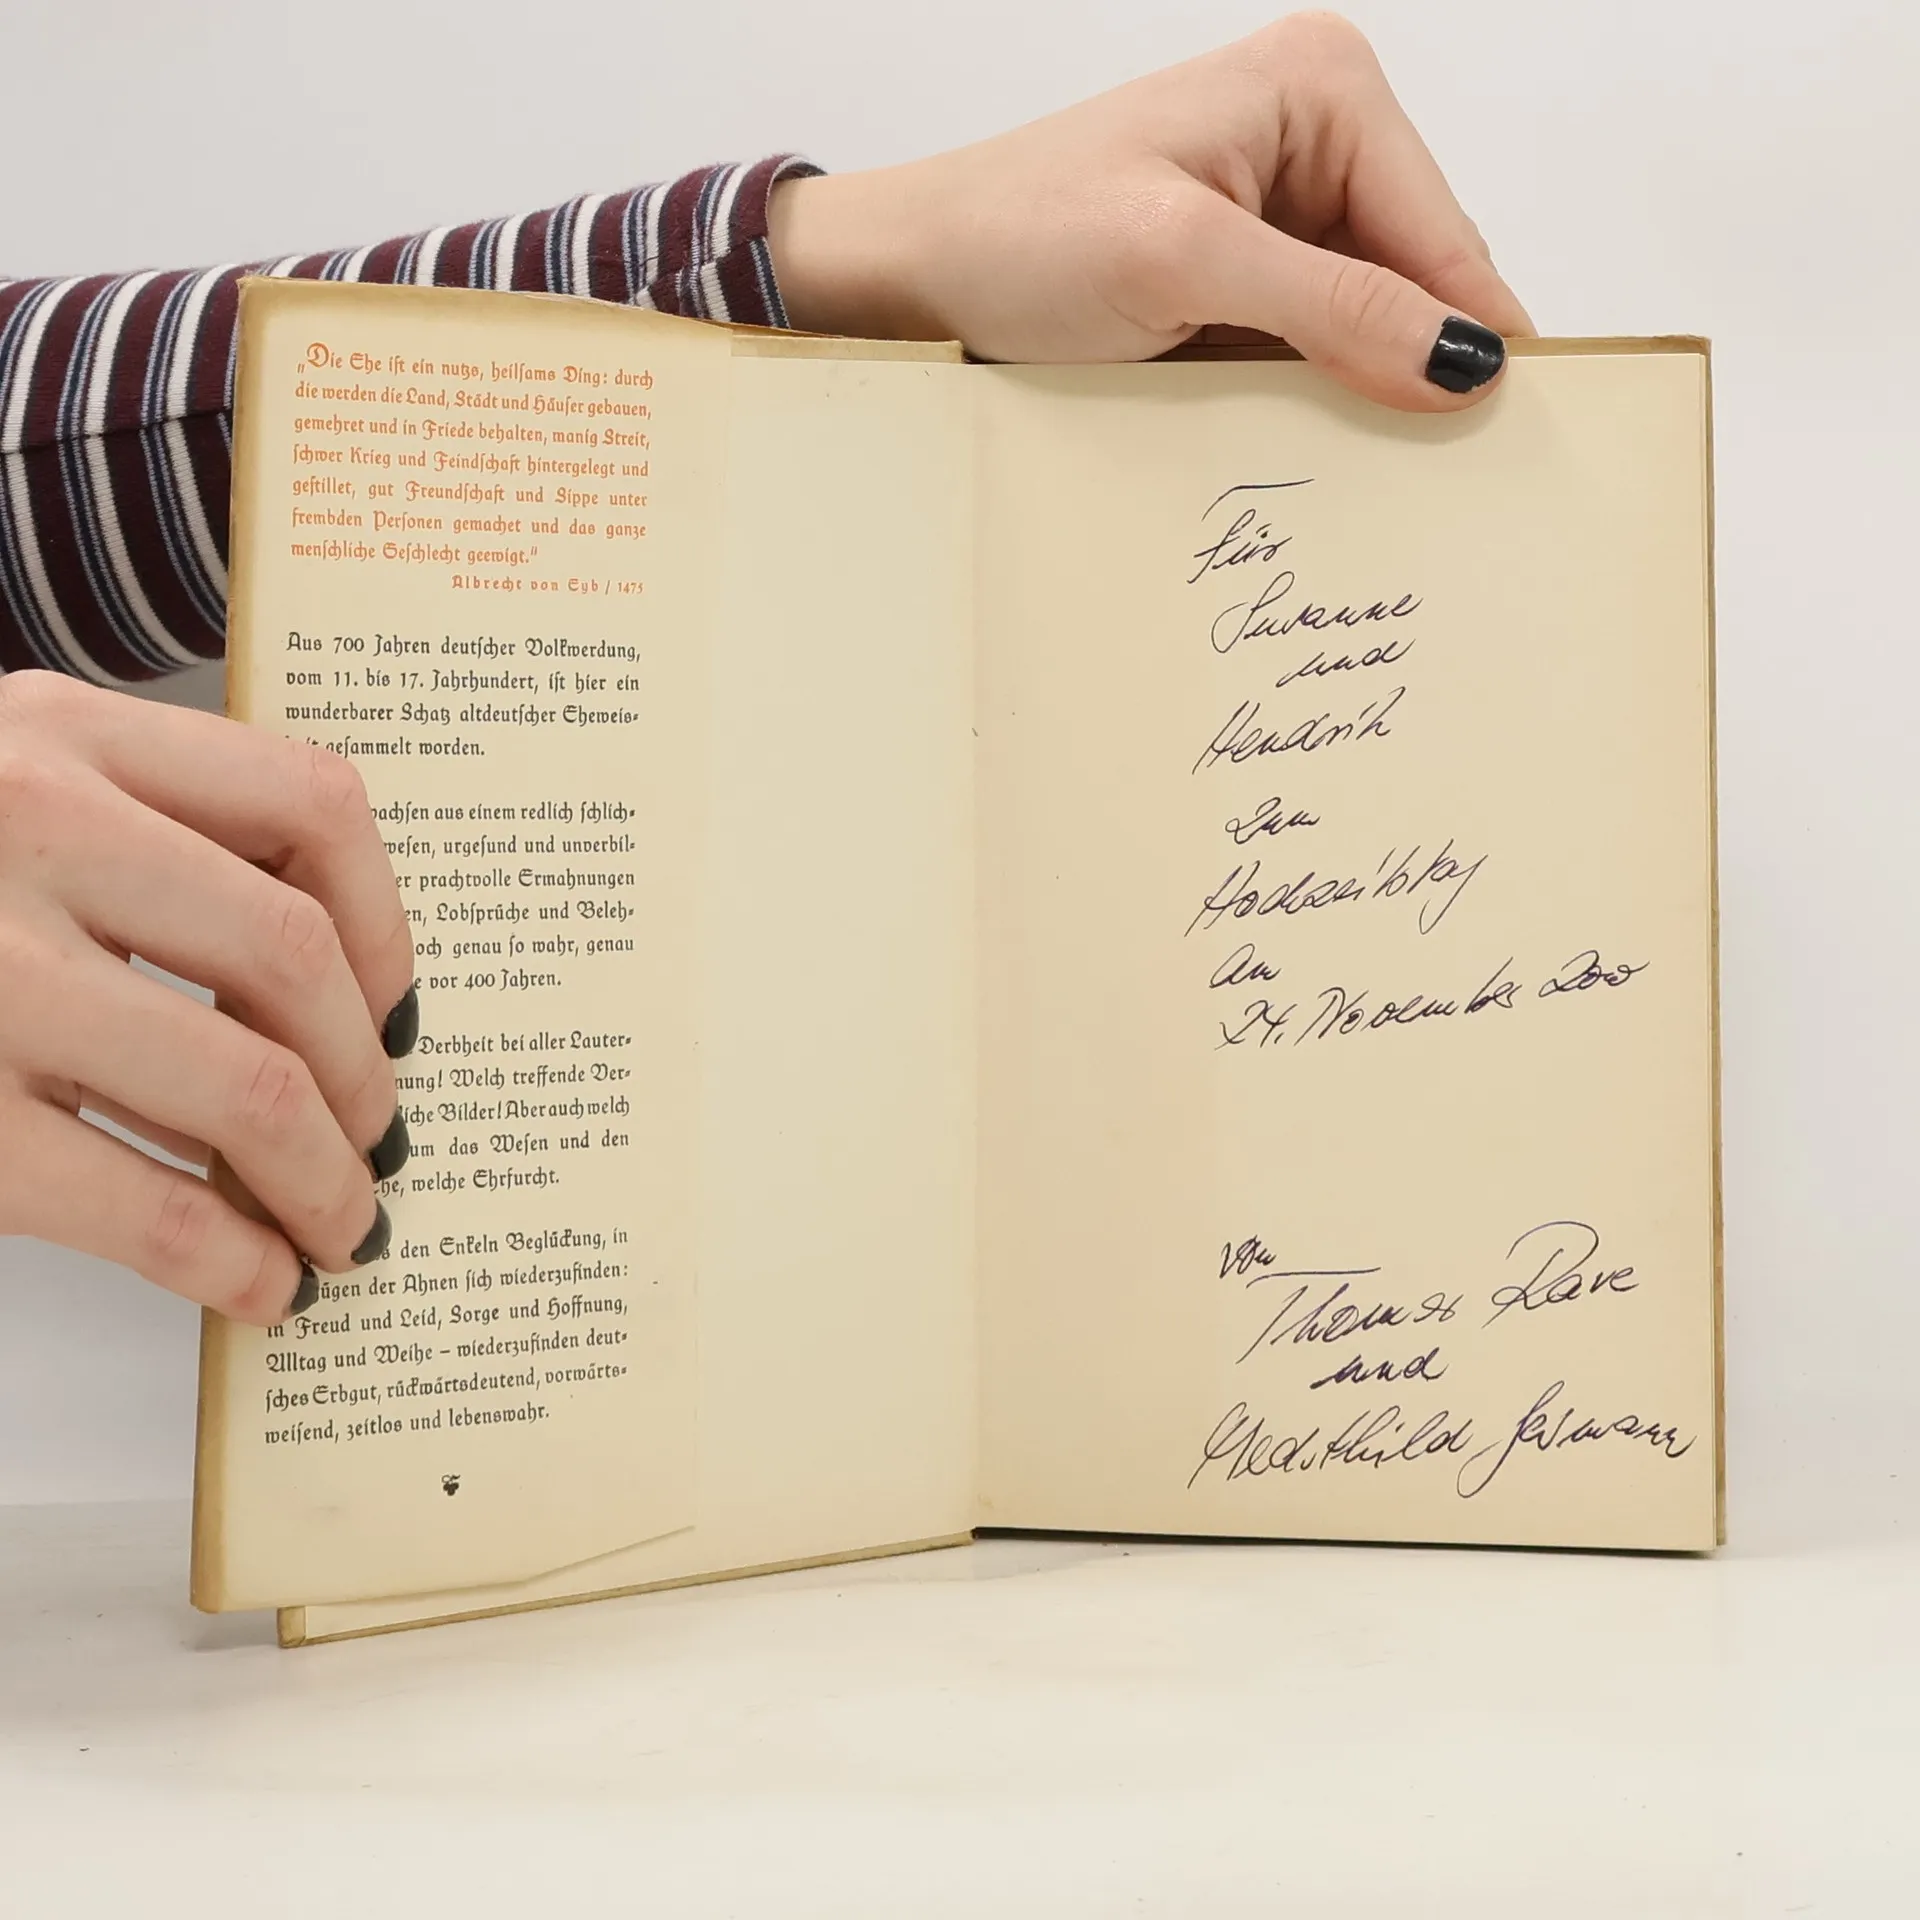 „Die Ehe iſt ein nutzs, heilſams Ding: durch
die werden die Land, Städt und Häuſer gebauen,
gemehret und in Friede behalten, manig Streit,
ſchwer Krieg und Feindſchaft hintergelegt und
geſtillet, gut Freundſchaft und Sippe unter
frembden Perſonen gemachet und das ganze
menſchliche Geſchlecht geewigt.“
Albrecht von Eyb / 1475
Aus 700 Jahren deutſcher Volkwerdung,
vom 11. bis 17. Jahrhundert, iſt hier ein
wunderbarer Schatz altdeutſcher Eheweis-
geſammelt worden.
aus einem redlich ſchlich-
weſen, urgeſund und unverbil-
prachtvolle Ermahnungen
Lobſprüche und Beleh-
genau ſo wahr, genau
vor 400 Jahren.
Derbheit bei aller Lauter-
nung! Welch treffende Ver-
liche Bilder! Aber auch welch
um das Weſen und den
welche Ehrfurcht.
den Enkeln Beglückung, in
der Ahnen ſich wiederzufinden:
in Freud und Leid, Sorge und Hoffnung,
Alltag und Weihe – wiederzufinden deut-
ſches Erbgut, rückwärtsdeutend, vorwärts-
weiſend, zeitlos und lebenswahr.
Für
Susanne
und
Hendrik
zum
Hochzeitstag
am
24. November 2000
von
Thomas Rave
und
Mechthild